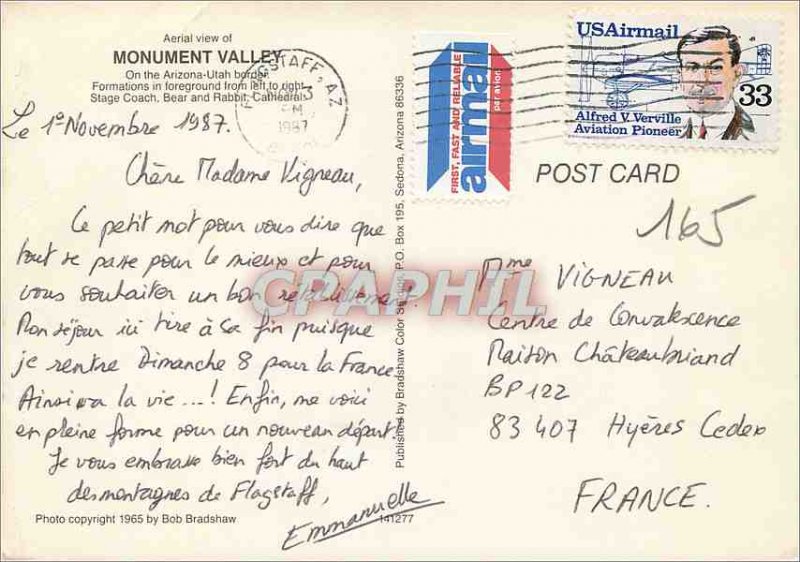 Aerial view of
MONUMENT VALLEY
On the Arizona-Utah border
Formations in foreground from left to right
Stage Coach, Bear and Rabbit, Cathedrals
FLAGSTAFF, AZ
3
PM
1987
FIRST, FAST AND RELIABLE
airmail
par avion
USAirmail
33
Alfred V. Verville
Aviation Pioneer
Le 1e Novembre 1987.
Chère Madame Vigneau,
Ce petit mot pour vous dire que
tout se passe pour le mieux et pour
vous souhaiter un bon rétablissement.
Mon séjour ici tire à sa fin puisque
je rentre Dimanche 8 pour la France
Ainsi va la vie...! Enfin, me voici
en pleine forme pour un nouveau départ.
Je vous embrasse bien fort du haut
des montagnes de Flagstaff,
Emmanuelle
Photo copyright 1965 by Bob Bradshaw
141277
Published by Bradshaw Color P.O. Box 195, Sedona, Arizona 86336
POST CARD
165
Mme VIGNEAU
Centre de Convalescence
Maison Châteaubriand
BP 122
83 407 Hyères Cedex
FRANCE.
CPAPHIL